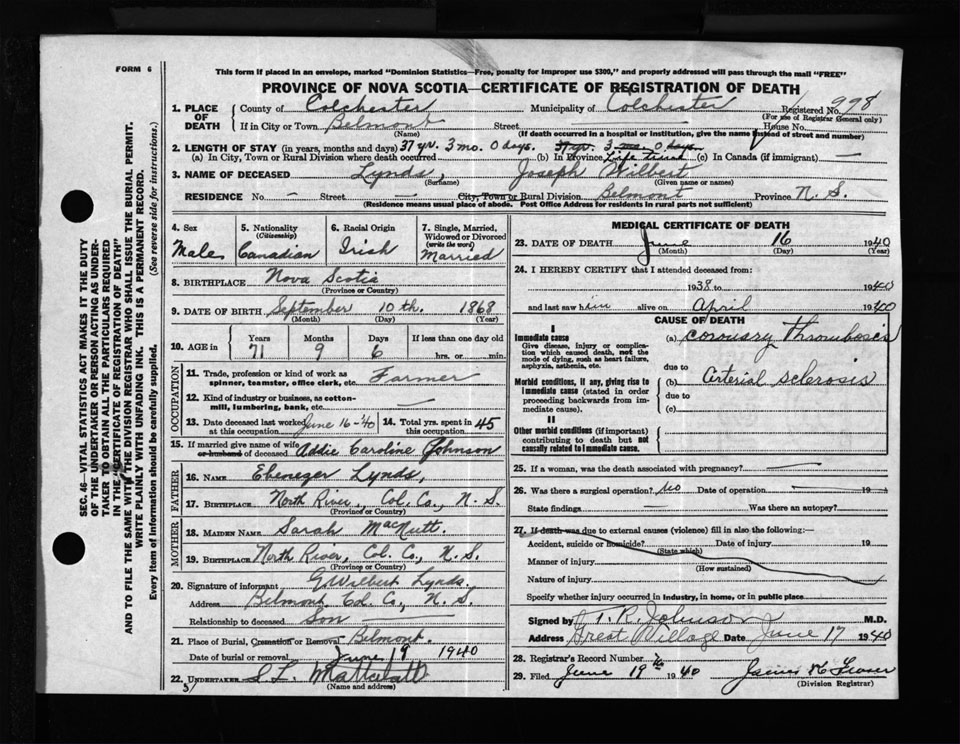 FORM 6
This form if placed in an envelope, marked "Dominion Statistics—Free, penalty for improper use $300," and properly addressed will pass through the mail "FREE"
PROVINCE OF NOVA SCOTIA—CERTIFICATE OF REGISTRATION OF DEATH
1. PLACE OF DEATH County of Colchester Municipality of Colchester Registered No. 998
(For use of Registrar General only)
If in City or Town Belmont Street House No.
(Name) (If death occurred in a hospital or institution, give the name instead of street and number)
2. LENGTH OF STAY (in years, months and days) 37 yr. 3 mo. 0 days. 37 yr. 3 mo. 0 days
(a) In City, Town or Rural Division where death occurred (b) In Province Life time (c) In Canada (if immigrant) —
3. NAME OF DECEASED Lynds, Joseph Wilbert
(Surname) (Given name or names)
RESIDENCE No. — Street City, Town or Rural Division Belmont Province N. S.
(Residence means usual place of abode. Post Office Address for residents in rural parts not sufficient)
4. Sex 5. Nationality (Citizenship) 6. Racial Origin 7. Single, Married, Widowed or Divorced (write the word)
Male Canadian Irish Married
8. BIRTHPLACE Nova Scotia
(Province or Country)
9. DATE OF BIRTH September 10th. 1868
(Month) (Day) (Year)
10. AGE in Years Months Days If less than one day old
71 9 6 hrs. or min.
OCCUPATION
11. Trade, profession or kind of work as spinner, teamster, office clerk, etc. Farmer
12. Kind of industry or business, as cotton-mill, lumbering, bank, etc. —
13. Date deceased last worked at this occupation June 16-40 14. Total yrs. spent in this occupation 45
15. If married give name of wife or husband of deceased Addie Caroline Johnson
FATHER
16. NAME Ebenezer Lynds,
17. BIRTHPLACE North River, Col. Co., N. S.
(Province or Country)
MOTHER
18. MAIDEN NAME Sarah MacNutt.
19. BIRTHPLACE North River, Col. Co., N. S.
(Province or Country)
20. Signature of informant G. Wilbert Lynds.
Address Belmont, Col. Co., N. S.
Relationship to deceased Son
21. Place of Burial, Cremation or Removal Belmont.
Date of burial or removal June 19 1940
22. UNDERTAKER S. L. Mattatall
(Name and address)
MEDICAL CERTIFICATE OF DEATH
23. DATE OF DEATH June 16 1940
(Month) (Day) (Year)
24. I HEREBY CERTIFY that I attended deceased from:
1938 to 1940
and last saw him alive on April 1940
CAUSE OF DEATH
I
Immediate cause
Give disease, injury or complication which caused death, not the mode of dying, such as heart failure, asphyxia, asthenia, etc.
(a) coronary Thrombosis
due to
Morbid conditions, if any, giving rise to immediate cause (stated in order proceeding backwards from immediate cause).
(b) Arterial sclerosis
due to
(c)
II
Other morbid conditions (if important) contributing to death but not causally related to immediate cause.
25. If a woman, was the death associated with pregnancy? —
26. Was there a surgical operation? no Date of operation 19
State findings — Was there an autopsy?
27. If death was due to external causes (violence) fill in also the following:—
Accident, suicide or homicide? Date of injury 19
(State which)
Manner of injury
(How sustained)
Nature of injury
Specify whether injury occurred in industry, in home, or in public place
Signed by T. R. Johnson M.D.
Address Great Village Date June 17 1940
28. Registrar's Record Number
29. Filed June 19 1940
(Division Registrar)
SEC. 46—VITAL STATISTICS ACT MAKES IT THE DUTY
OF THE UNDERTAKER OR PERSON ACTING AS UNDER-
TAKER TO OBTAIN ALL THE PARTICULARS REQUIRED
IN THE "CERTIFICATE OF REGISTRATION OF DEATH"
AND TO FILE THE SAME WITH THE DIVISION REGISTRAR WHO SHALL ISSUE THE BURIAL PERMIT.
WRITE PLAINLY WITH UNFADING INK. THIS IS A PERMANENT RECORD.
Every item of information should be carefully supplied. (See reverse side for instructions.)